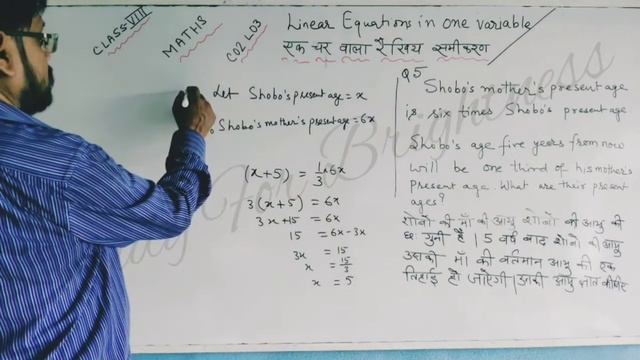 CLASS-VIII
MATHS
CO2 LO3
Linear Equations in one variable
एक चर वाला रैखिय समीकरण
Let Shobo's present age = x
Shobo's mother's present age = 6x
(x+5) = 1/3 × 6x
3(x+5) = 6x
3x+15 = 6x
15 = 6x-3x
3x = 15
x = 15/3
x = 5
Q5
Shobo's mother's present age
is six times Shobo's present age
Shobo's age five years from now
will be one third of his mother's
present age. What are their present
ages?
शोबो की माँ की आयु शोबो की आयु की
छः गुनी है। 5 वर्ष बाद शोबो की आयु
उसकी माँ की वर्तमान आयु की एक
तिहाई हो जाएगी। उनकी आयु ज्ञात कीजिए
For Brightness